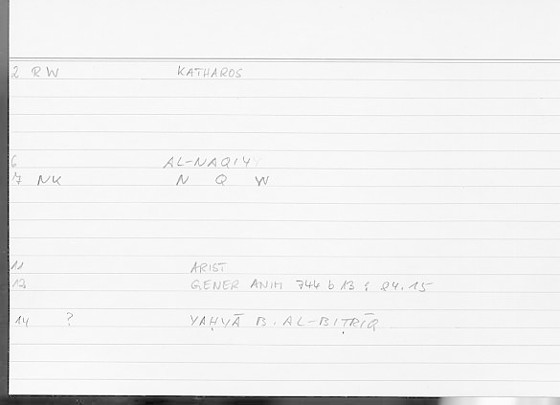 2 RW KATHAROS
6 AL-NAQIY
7 NK N Q W
11 ARIST
12 GENER ANIM 744 b 13 ; 84.15
14 ? YAḤYĀ B. AL-BIṬRĪQ